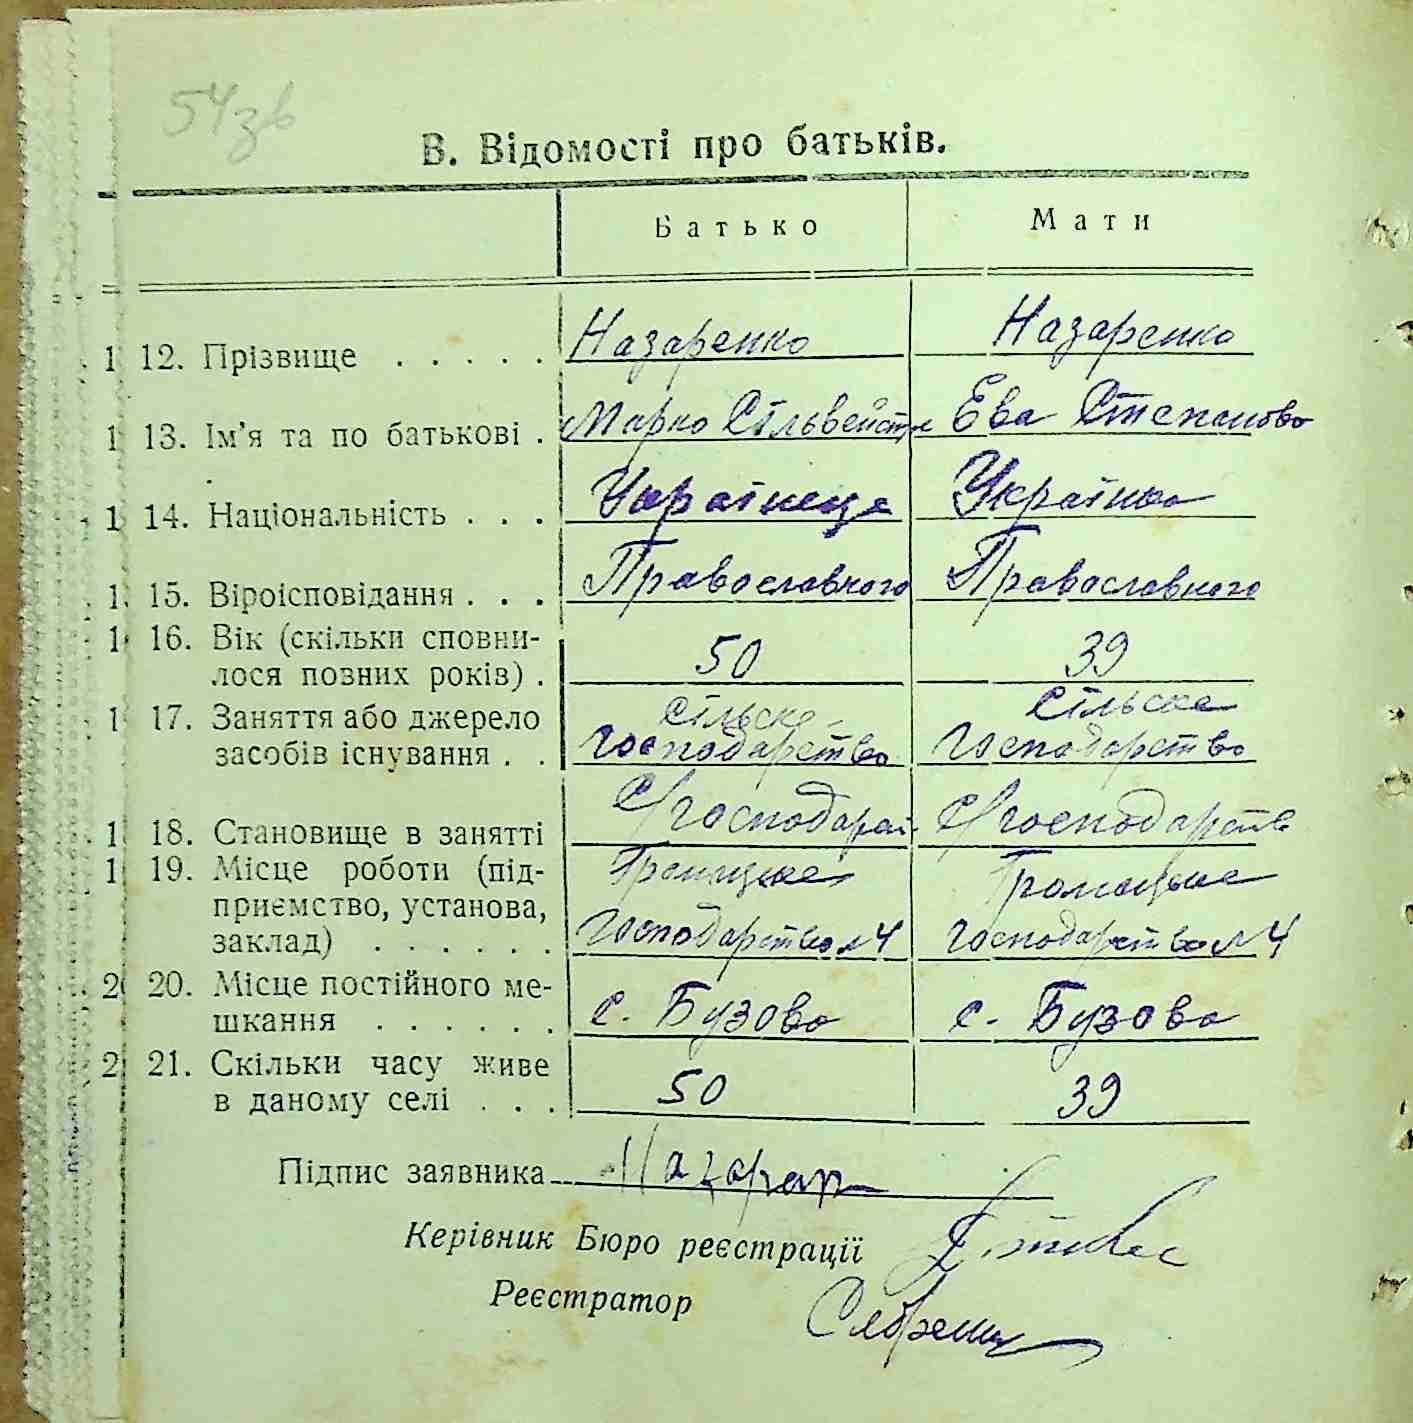 54зв
В. Відомості про батьків.
Батько Мати
12. Прізвище . . . . . Назаренко Назаренко
13. Ім'я та по батькові . Марко Сільвейстр Ева Степанова
14. Національність . . . Українець Українка
15. Віроісповідання . . . Православного Православного
16. Вік (скільки сповни-
лося позних років) . 50 39
17. Заняття або джерело Сільске Сільске
засобів існування . . Господарство Господарство
18. Становище в занятті С/господарст С/господарств
19. Місце роботи (під- Громадське Громадське
приємство, установа,
заклад) . . . . . . Господарство №4 Господарство №4
20. Місце постійного ме-
шкання . . . . . . с. Бузова с. Бузова
21. Скільки часу живе
в даному селі . . . 50 39
Підпис заявника Назарен
Керівник Бюро реєстрації
Реєстратор